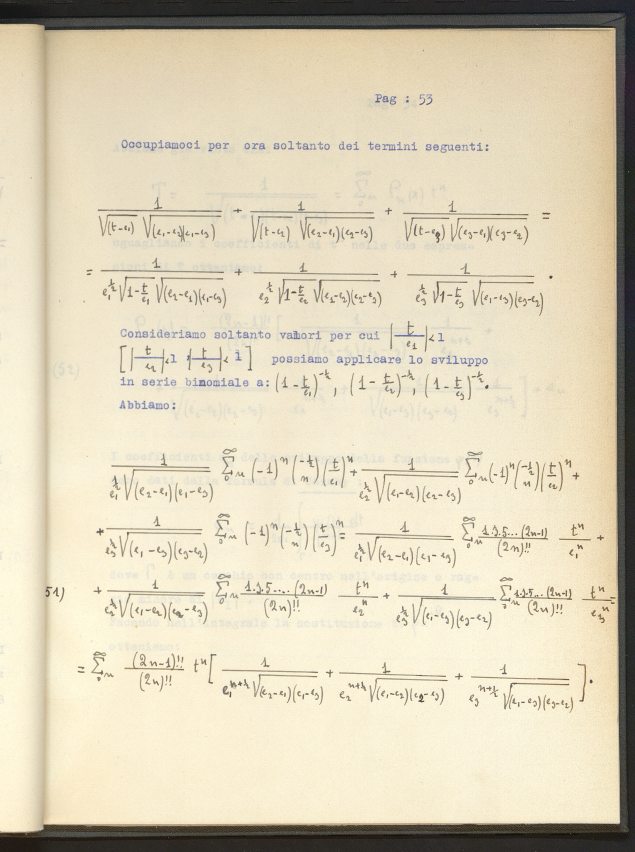 Pag : 53
Occupiamoci per ora soltanto dei termini seguenti:
1/(√(t-e₁) √(e₁-e₂)(e₁-e₃)) + 1/(√(t-e₂) √(e₂-e₁)(e₂-e₃)) + 1/(√(t-e₃) √(e₃-e₁)(e₃-e₂)) =
= 1/(e₁^½ √(1-t/e₁) √(e₂-e₁)(e₁-e₃)) + 1/(e₂^½ √(1-t/e₂) √(e₁-e₂)(e₂-e₃)) + 1/(e₃^½ √(1-t/e₃) √(e₁-e₃)(e₃-e₂)) .
Consideriamo soltanto valori per cui |t/e₁|<1
[|t/e₂|<1 , |t/e₃|<1] possiamo applicare lo sviluppo
in serie binomiale a: (1-t/e₁)^-½, (1-t/e₂)^-½, (1-t/e₃)^-½.
Abbiamo:
1/(e₁^½ √(e₂-e₁)(e₁-e₃)) ∑₀^∞ n (-1)^n (-½ n)(t/e₁)^n + 1/(e₂^½ √(e₁-e₂)(e₂-e₃)) ∑₀^∞ n (-1)^n (-½ n)(t/e₂)^n +
+ 1/(e₃^½ √(e₁-e₃)(e₃-e₂)) ∑₀^∞ n (-1)^n (-½ n)(t/e₃)^n = 1/(e₁^½ √(e₂-e₁)(e₁-e₃)) ∑₀^∞ n 1.3.5...(2n-1)/(2n)!! t^n/e₁^n +
51) + 1/(e₂^½ √(e₁-e₂)(e₂-e₃)) ∑₀^∞ n 1.3.5...(2n-1)/(2n)!! t^n/e₂^n + 1/(e₃^½ √(e₁-e₃)(e₃-e₂)) ∑₀^∞ n 1.3.5...(2n-1)/(2n)!! t^n/e₃^n =
= ∑₀^∞ n (2n-1)!!/(2n)!! t^n [ 1/(e₁^(n+½) √(e₂-e₁)(e₁-e₃)) + 1/(e₂^(n+½) √(e₁-e₂)(e₂-e₃)) + 1/(e₃^(n+½) √(e₁-e₃)(e₃-e₂)) ].